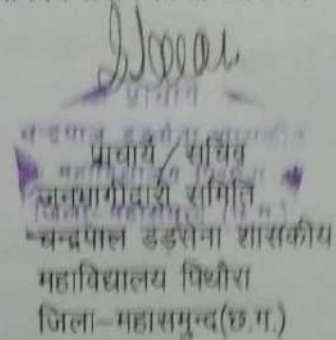 प्राचार्य
प्राचार्य/सचिव
जनभागीदारी समिति
चन्द्रपाल डड़सेना शासकीय
महाविद्यालय पिथौरा
जिला-महासमुन्द(छ.ग.)